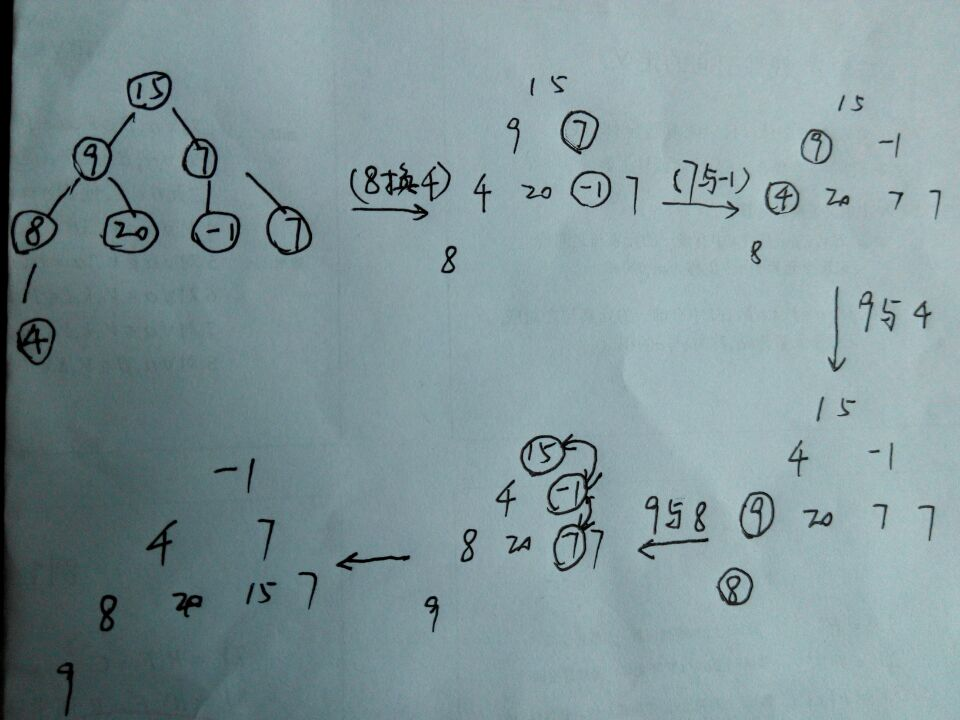 15
9 7
8 20 -1 7
4
(8换4)
15
9 7
4 20 -1 7
8
(7与-1)
15
9 -1
4 20 7 7
8
9与4
15
4 -1
9 20 7 7
8
9与8
15
4 -1
8 20 7 7
9
-1
4 7
8 20 15 7
9